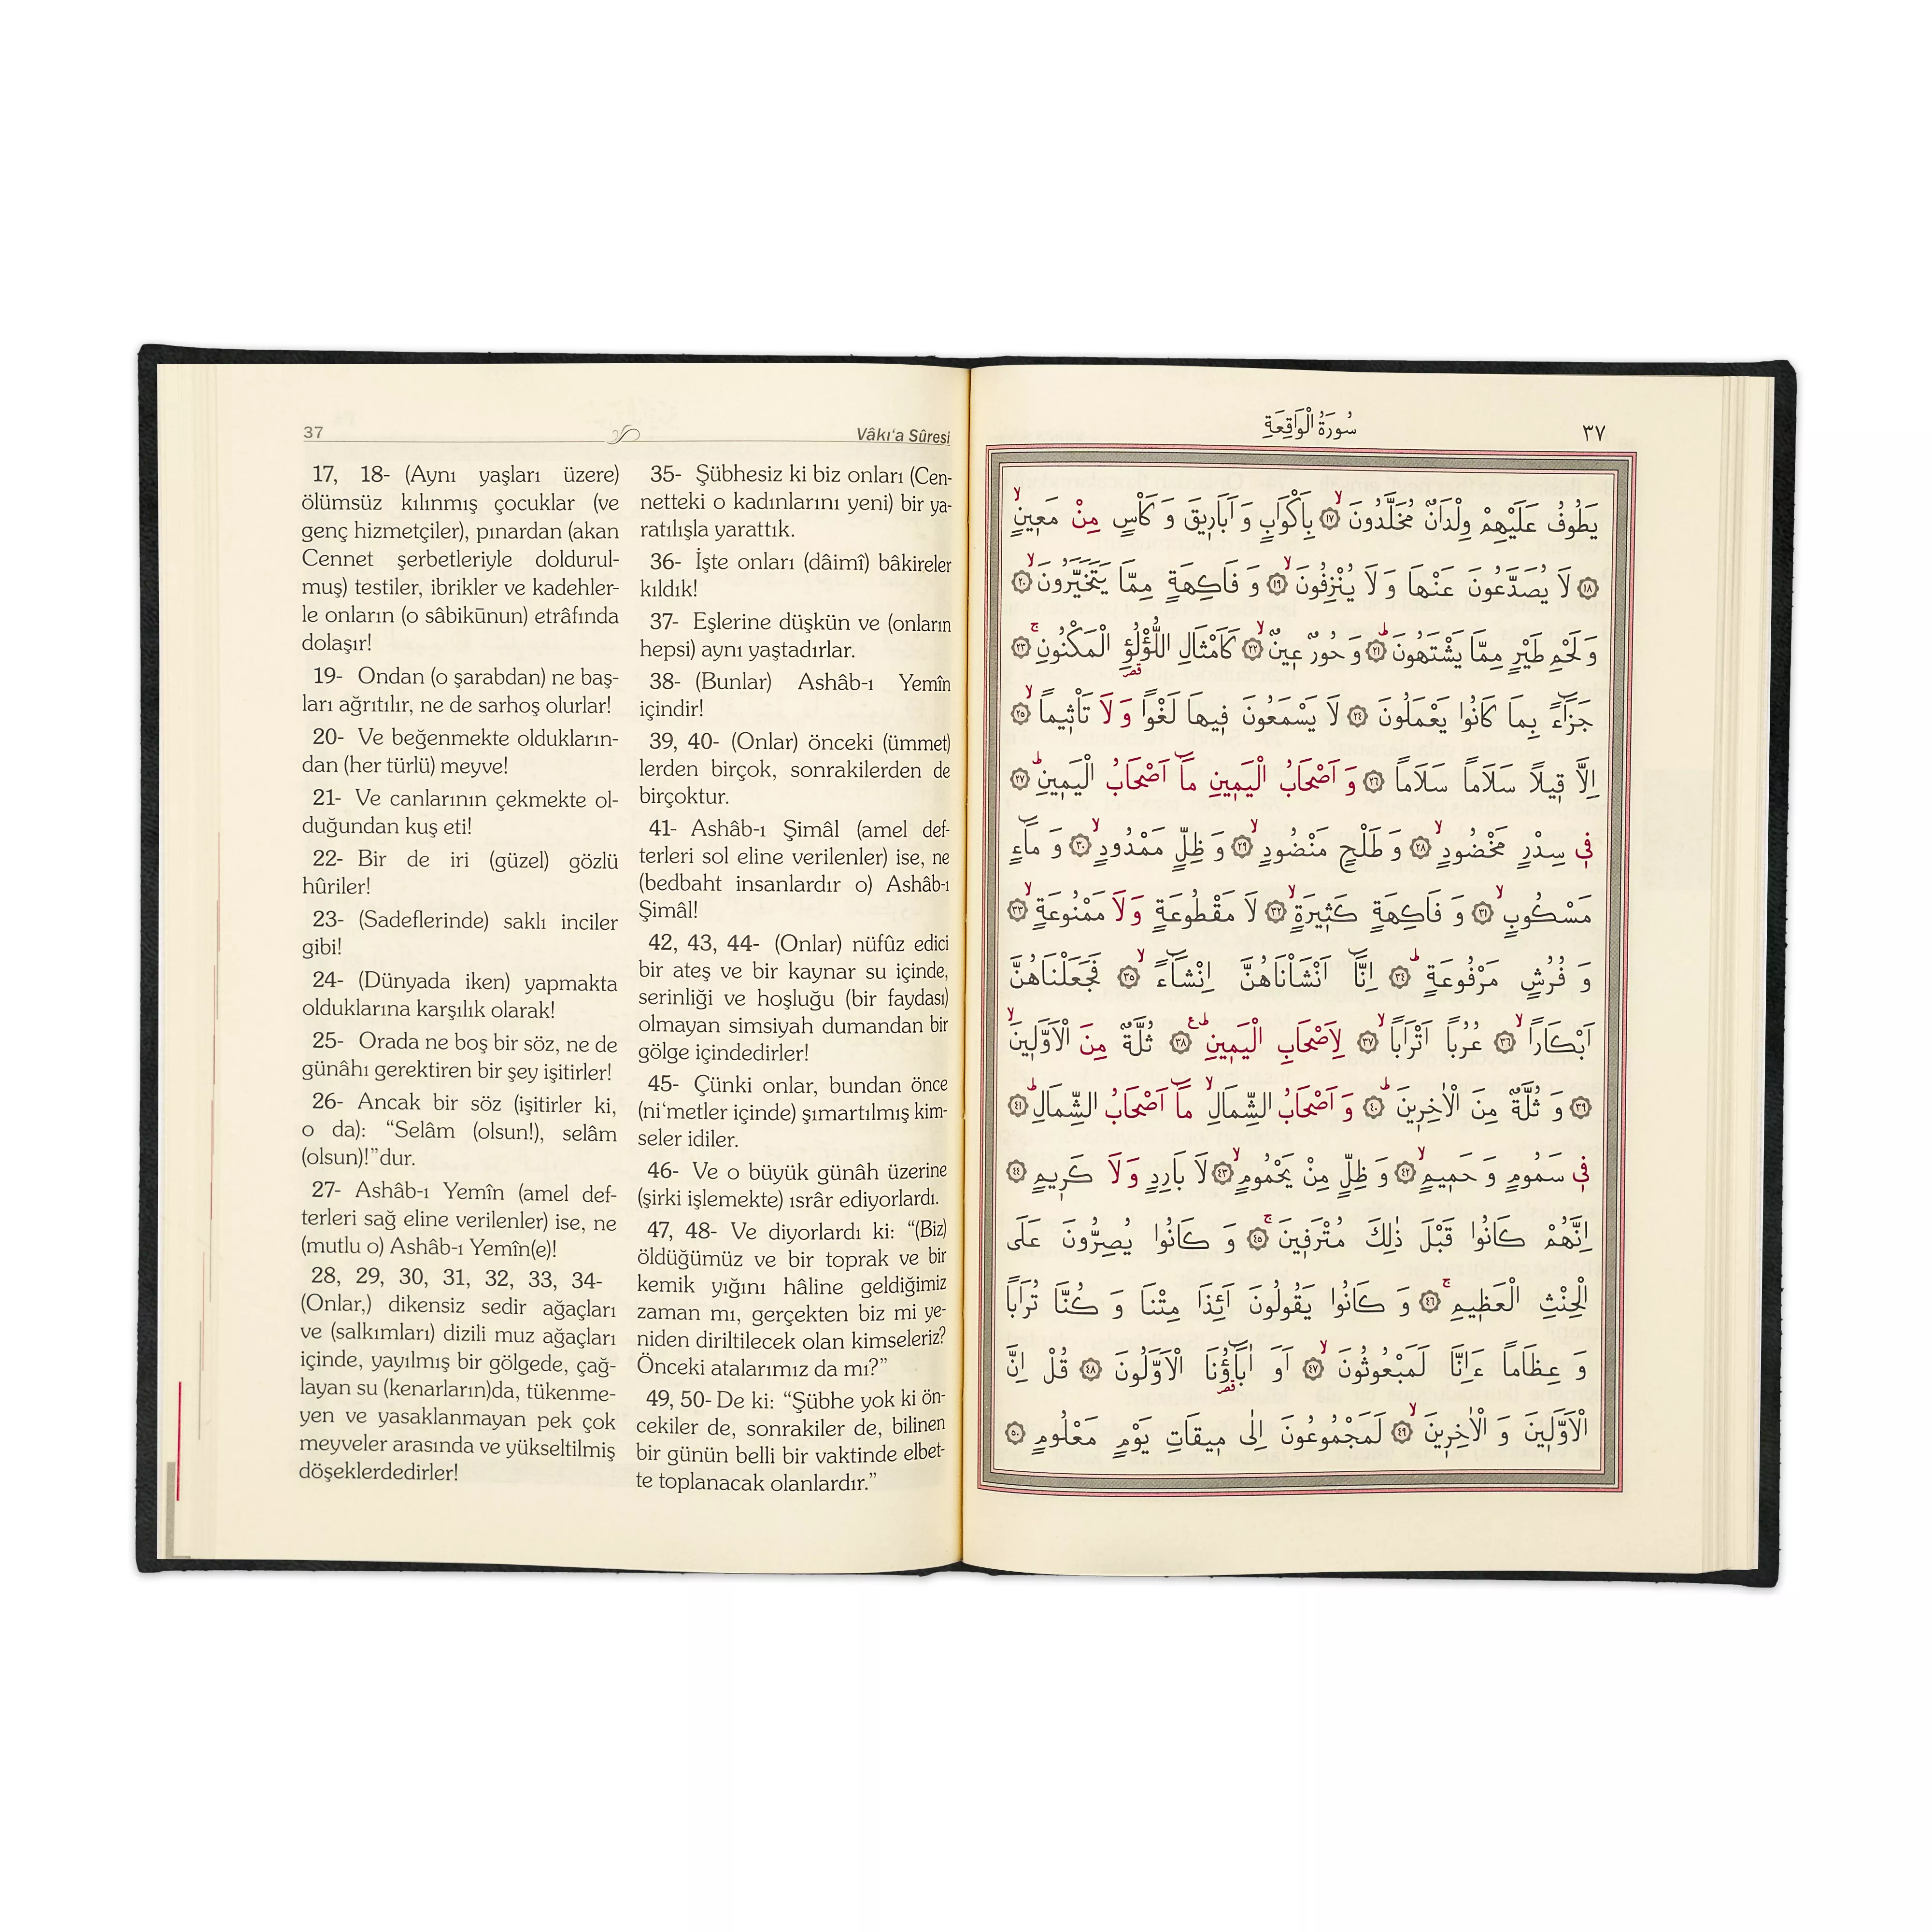 37 Vâkı‘a Sûresi
17, 18- (Aynı yaşları üzere)
ölümsüz kılınmış çocuklar (ve
genç hizmetçiler), pınardan (akan
Cennet şerbetleriyle doldurul-
muş) testiler, ibrikler ve kadehler-
le onların (o sâbikūnun) etrâfında
dolaşır!
19- Ondan (o şarabdan) ne baş-
ları ağrıtılır, ne de sarhoş olurlar!
20- Ve beğenmekte oldukların-
dan (her türlü) meyve!
21- Ve canlarının çekmekte ol-
duğundan kuş eti!
22- Bir de iri (güzel) gözlü
hûriler!
23- (Sadeflerinde) saklı inciler
gibi!
24- (Dünyada iken) yapmakta
olduklarına karşılık olarak!
25- Orada ne boş bir söz, ne de
günâhı gerektiren bir şey işitirler!
26- Ancak bir söz (işitirler ki,
o da): “Selâm (olsun!), selâm
(olsun)!”dur.
27- Ashâb-ı Yemîn (amel def-
terleri sağ eline verilenler) ise, ne
(mutlu o) Ashâb-ı Yemîn(e)!
28, 29, 30, 31, 32, 33, 34-
(Onlar,) dikensiz sedir ağaçları
ve (salkımları) dizili muz ağaçları
içinde, yayılmış bir gölgede, çağ-
layan su (kenarların)da, tükenme-
yen ve yasaklanmayan pek çok
meyveler arasında ve yükseltilmiş
döşeklerdedirler!
35- Şübhesiz ki biz onları (Cen-
netteki o kadınlarını yeni) bir ya-
ratılışla yarattık.
36- İşte onları (dâimî) bâkireler
kıldık!
37- Eşlerine düşkün ve (onların
hepsi) aynı yaştadırlar.
38- (Bunlar) Ashâb-ı Yemîn
içindir!
39, 40- (Onlar) önceki (ümmet)
lerden birçok, sonrakilerden de
birçoktur.
41- Ashâb-ı Şimâl (amel def-
terleri sol eline verilenler) ise, ne
(bedbaht insanlardır o) Ashâb-ı
Şimâl!
42, 43, 44- (Onlar) nüfûz edici
bir ateş ve bir kaynar su içinde,
serinliği ve hoşluğu (bir faydası)
olmayan simsiyah dumandan bir
gölge içindedirler!
45- Çünki onlar, bundan önce
(ni‘metler içinde) şımartılmış kim-
seler idiler.
46- Ve o büyük günâh üzerine
(şirki işlemekte) ısrâr ediyorlardı.
47, 48- Ve diyorlardı ki: “(Biz)
öldüğümüz ve bir toprak ve bir
kemik yığını hâline geldiğimiz
zaman mı, gerçekten biz mi ye-
niden diriltilecek olan kimseleriz?
Önceki atalarımız da mı?”
49, 50- De ki: “Şübhe yok ki ön-
cekiler de, sonrakiler de, bilinen
bir günün belli bir vaktinde elbet-
te toplanacak olanlardır.”
سُورَةُ الْوَاقِعَةِ ٣٧
يَطُوفُ عَلَيْهِمْ وِلْدَانٌ مُخَلَّدُونَۙ ﴿١٧﴾ بِاَكْوَابٍ وَ اَبَارِيقَ وَ كَأْسٍ مِنْ مَعِينٍۙ
﴿١٨﴾ لَا يُصَدَّعُونَ عَنْهَا وَ لَا يُنْزِفُونَۙ ﴿١٩﴾ وَ فَاكِهَةٍ مِمَّا يَتَخَيَّرُونَۙ ﴿٢٠﴾
وَ لَحْمِ طَيْرٍ مِمَّا يَشْتَهُونَۜ ﴿٢١﴾ وَ حُورٌ عِينٌۙ ﴿٢٢﴾ كَاَمْثَالِ اللُّؤْلُؤِ الْمَكْنُونِۚ ﴿٢٣﴾
جَزَٓاءً بِمَا كَانُوا يَعْمَلُونَ ﴿٢٤﴾ لَا يَسْمَعُونَ فِيهَا لَغْوًا وَ لَا تَأْثِيماًۙ ﴿٢٥﴾
اِلَّا قِيلاً سَلَاماً سَلَاماً ﴿٢٦﴾ وَ اَصْحَابُ الْيَمِينِ مَٓا اَصْحَابُ الْيَمِينِۜ ﴿٢٧﴾
فِي سِدْرٍ مَخْضُودٍۙ ﴿٢٨﴾ وَ طَلْحٍ مَنْضُودٍۙ ﴿٢٩﴾ وَ ظِلٍّ مَمْدُودٍۙ ﴿٣٠﴾ وَ مَٓاءٍ
مَسْكُوبٍۙ ﴿٣١﴾ وَ فَاكِهَةٍ كَثِيرَةٍۙ ﴿٣٢﴾ لَا مَقْطُوعَةٍ وَ لَا مَمْنُوعَةٍۙ ﴿٣٣﴾
وَ فُرُشٍ مَرْفُوعَةٍۜ ﴿٣٤﴾ اِنَّٓا اَنْشَاْنَاهُنَّ اِنْشَٓاءًۙ ﴿٣٥﴾ فَجَعَلْنَاهُنَّ
اَبْكَاراًۙ ﴿٣٦﴾ عُرُباً اَتْرَاباًۙ ﴿٣٧﴾ لِاَصْحَابِ الْيَمِينِۜ ع ﴿٣٨﴾ ثُلَّةٌ مِنَ الْاَوَّلِينَۙ
﴿٣٩﴾ وَ ثُلَّةٌ مِنَ الْاٰخِرِينَۜ ﴿٤٠﴾ وَ اَصْحَابُ الشِّمَالِۙ مَٓا اَصْحَابُ الشِّمَالِۜ ﴿٤١﴾
فِي سَمُومٍ وَ حَمِيمٍۙ ﴿٤٢﴾ وَ ظِلٍّ مِنْ يَحْمُومٍۙ ﴿٤٣﴾ لَا بَارِدٍ وَ لَا كَرِيمٍ ﴿٤٤﴾
اِنَّهُمْ كَانُوا قَبْلَ ذٰلِكَ مُتْرَفِينَۚ ﴿٤٥﴾ وَ كَانُوا يُصِرُّونَ عَلَى
الْحِنْثِ الْعَظِيمِۚ ﴿٤٦﴾ وَ كَانُوا يَقُولُونَ اَئِذَا مِتْنَا وَ كُنَّا تُرَاباً
وَ عِظَاماً ءَاِنَّا لَمَبْعُوثُونَۙ ﴿٤٧﴾ اَوَ اٰبَٓاؤُنَا الْاَوَّلُونَ ﴿٤٨﴾ قُلْ اِنَّ
الْاَوَّلِينَ وَ الْاٰخِرِينَۙ ﴿٤٩﴾ لَمَجْمُوعُونَ اِلٰى مِيقَاتِ يَوْمٍ مَعْلُومٍ ﴿٥٠﴾